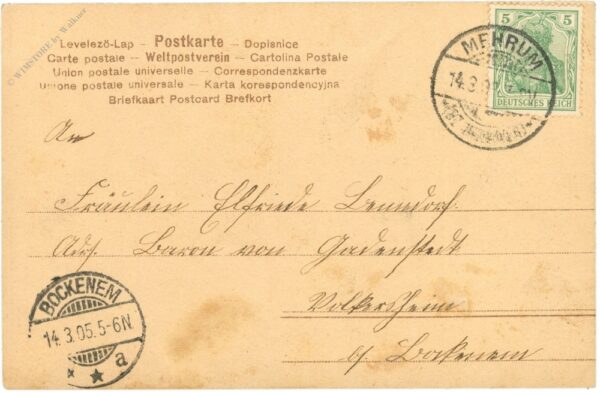 © WIMSTORE by Walkner
Levelezö-Lap – Postkarte – Dopisnice
Carte postale – Weltpostverein – Cartolina Postale
Union postale universelle – Correspondenzkarte
Unione postale universale – Karta korespondencyjna
Briefkaart Postcard Brefkort
5 5
DEUTSCHES REICH
MEHRUM
14.3.
An
Fräulein Elfriede
Adr. Baron von Gadenstedt
Volkersheim
b/ Bockenem
BOCKENEM
14.3.05.5-6N.
* * a